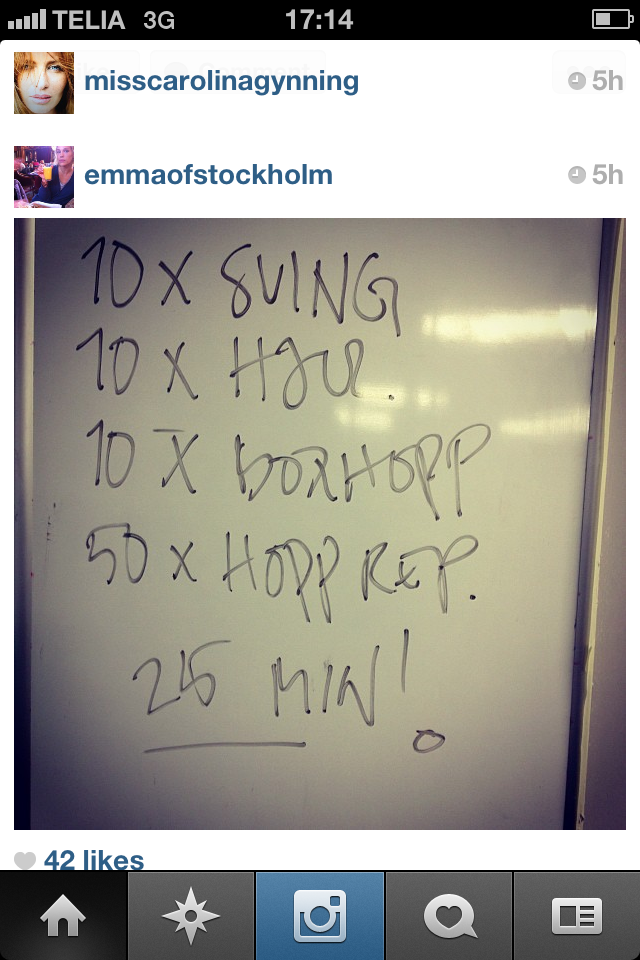 TELIA 3G 17:14
misscarolinagynning 5h
emmaofstockholm 5h
10 X SVING
10 X HJUL.
10 X BOXHOPP
50 X HOPP REP.
25 MIN!
42 likes